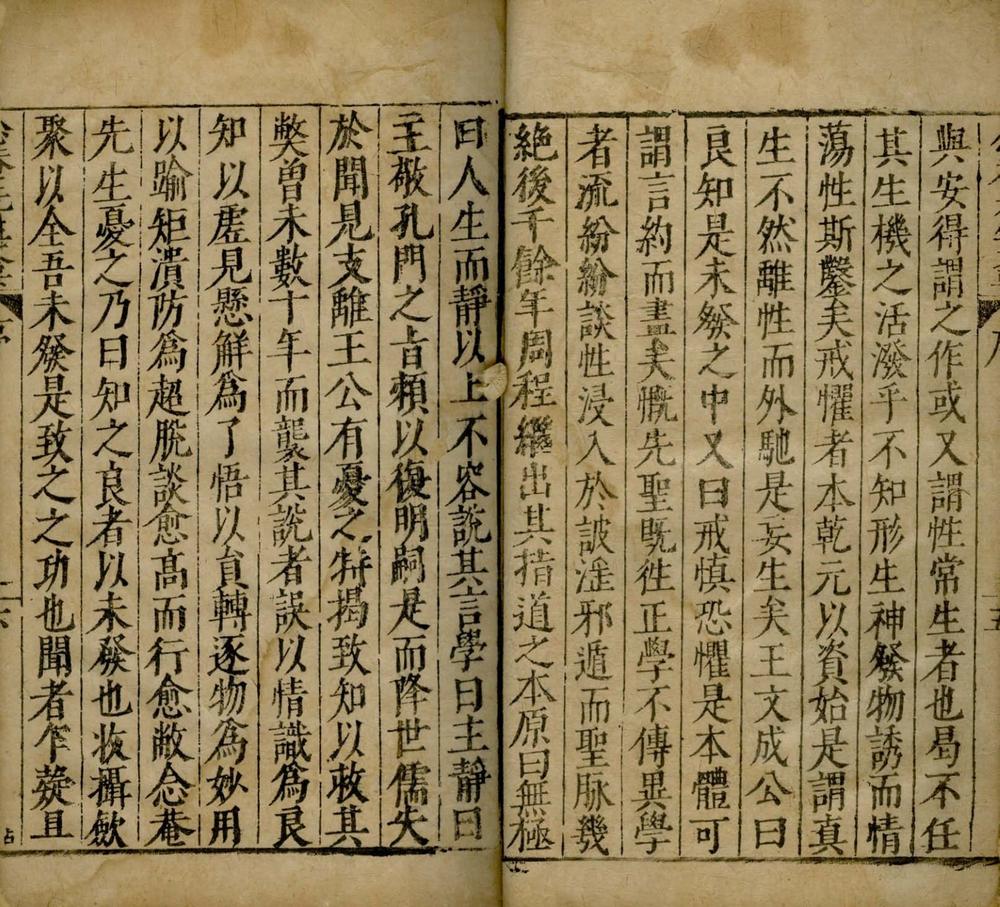 與安得謂之作或又謂性常生者也曷不任
其生機之活潑乎不知形生神發物誘而情
蕩性斯鑿矣戒懼者本乾元以資始是謂真
生不然離性而外馳是妄生矣王文成公曰
良知是未發之中又曰戒慎恐懼是本體可
謂言約而盡矣慨先聖既徃正學不傳異學
者流紛紛談性浸入於詖淫邪遁而聖脉幾
絶後千餘年周程繼出其指道之本原曰無極
曰人生而靜以上不容說其言學曰主靜曰
主敬孔門之旨頼以復明嗣是而降世儒失
於聞見支離王公有憂之特揭致知以救其
獘曾未數十年而襲其說者誤以情識為良
知以虛見懸解爲了悟以負轉逐物為妙用
以踰矩潰防爲超脫談愈高而行愈敝念菴
先生憂之乃曰知之良者以未發也收攝歛
聚以全吾未發是致之之功也聞者乍疑且